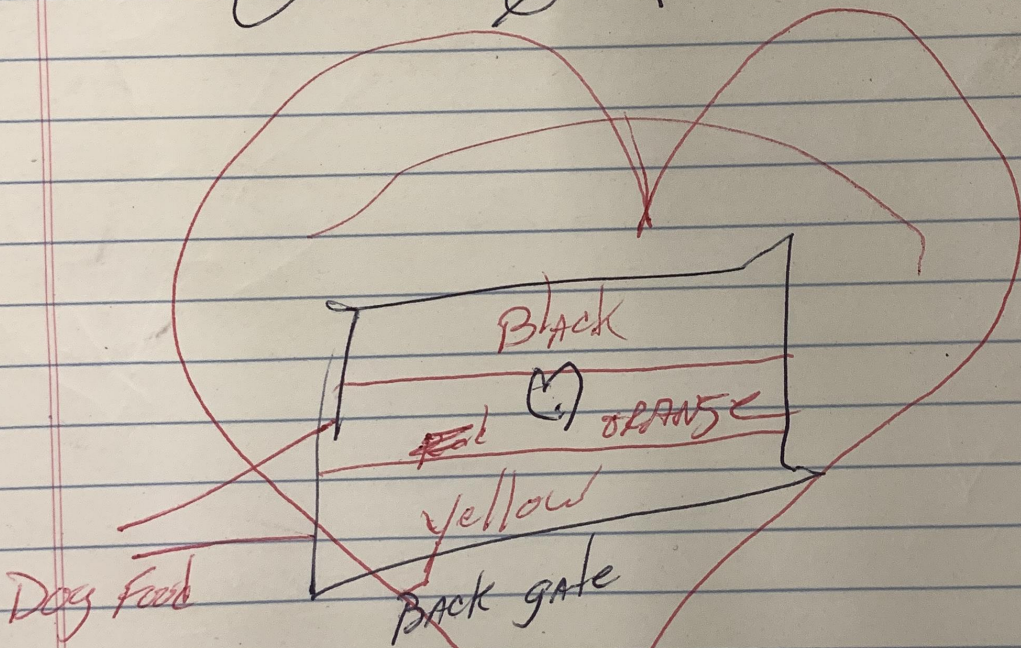 Black
Red ORANGE
Yellow
Dog Food
BACK gATE